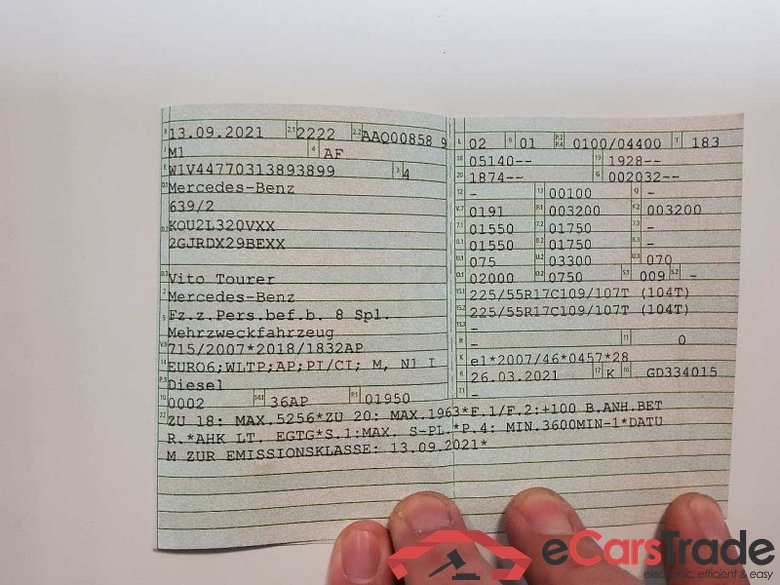 B 13.09.2021 2.1 2222 2.2 AAQ00858 9
J M1 4 AF
E W1V44770313893899 3 4
D.1 Mercedes-Benz
639/2
D.2 KOU2L320VXX
2GJRDX29BEXX
D.3 Vito Tourer
2 Mercedes-Benz
5 Fz.z.Pers.bef.b. 8 Spl.
Mehrzweckfahrzeug
V.9 715/2007*2018/1832AP
14 EURO6;WLTP;AP;PI/CI; M, N1 I
P.3 Diesel
10 0002 14.1 36AP P.1 01950
22 ZU 18: MAX.5256*ZU 20: MAX.1963*F.1/F.2:+100 B.ANH.BET
R.*AHK LT. EGTG*S.1:MAX. S-PL.*P.4: MIN.3600MIN-1*DATU
M ZUR EMISSIONSKLASSE: 13.09.2021*
L 02 9 01 P.2 P.4 0100/04400 T 183
18 05140-- 19 1928--
20 1874-- G 002032--
12 - 13 00100 Q -
V.7 0191 F.1 003200 F.2 003200
7.1 01550 7.2 01750 7.3 -
8.1 01550 8.2 01750 8.3 -
U.1 075 U.2 03300 U.3 070
O.1 02000 O.2 0750 S.1 009 S.2 -
15.1 225/55R17C109/107T (104T)
15.2 225/55R17C109/107T (104T)
15.3 -
R - 11 0
K e1*2007/46*0457*28
6 26.03.2021 17 K 16 GD334015
21 -
eCarsTrade
electronic, efficient & easy